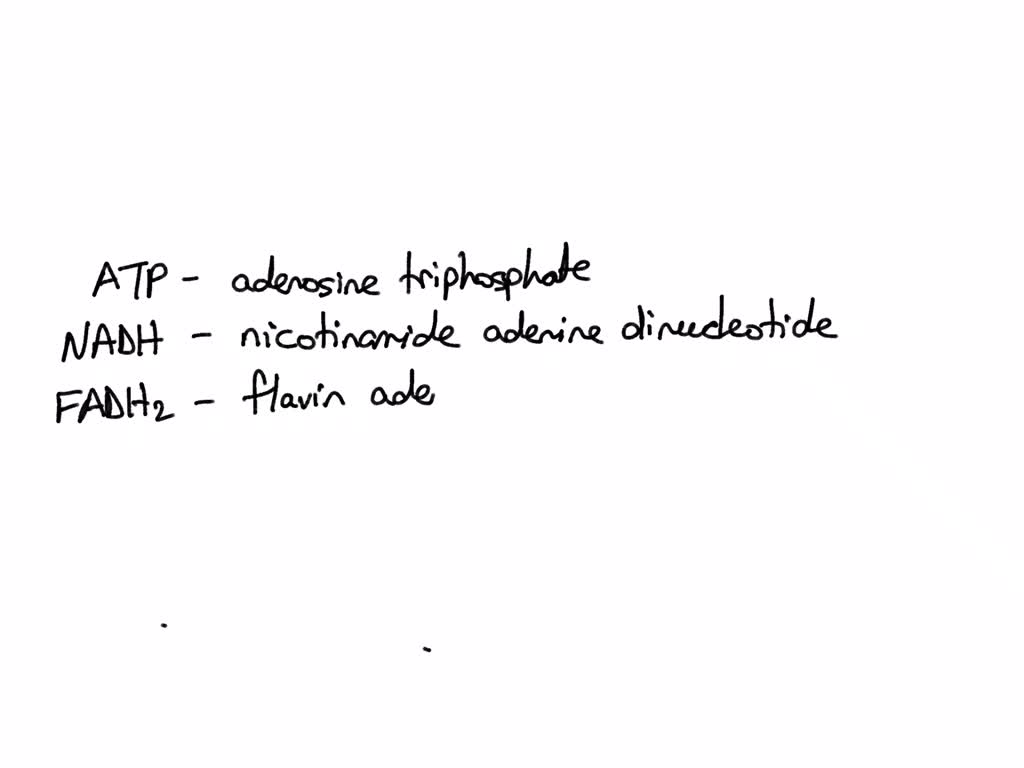 ATP - adenosine triphosphate
NADH - nicotinamide adenine dinucleotide
FADH2 - flavin ade